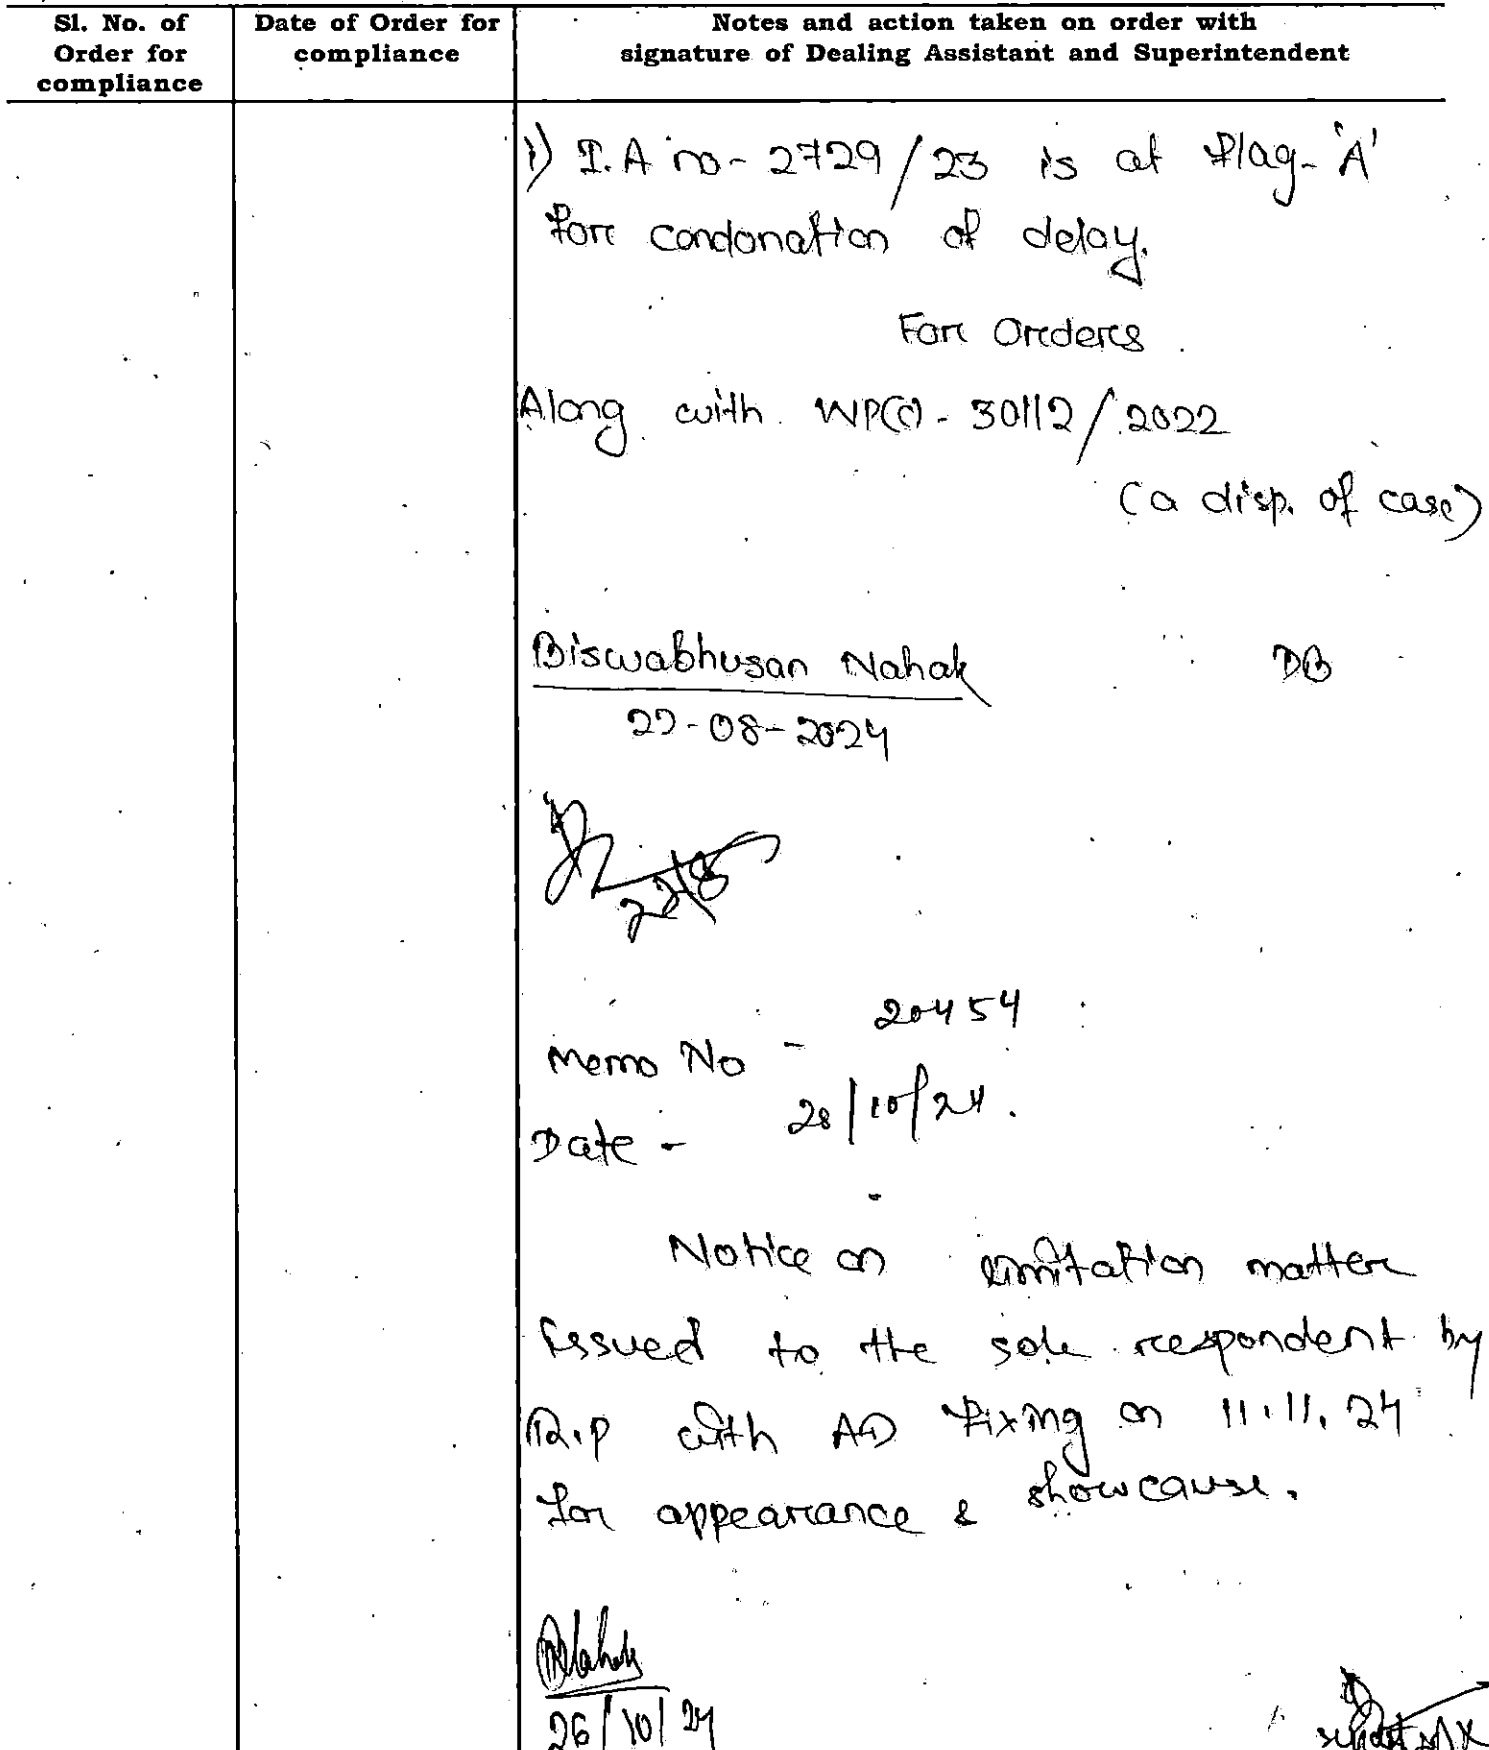 Sl. No. of Order for compliance
Date of Order for compliance
Notes and action taken on order with signature of Dealing Assistant and Superintendent
1) I.A no- 2729/23 is at Flag-'A'
For condonation of delay.
For Orders.
Along with WP(C)- 30112/2022
(a disp. of case)
Biswabhusan Nahak
DB
22-08-2024
22/8
Memo No - 20454
Date - 28/10/24.
Notice on limitation matter
issued to the sole respondent by
R.P with AD Fixing on 11.11.24
for appearance & showcause.
BNahak
26/10/24